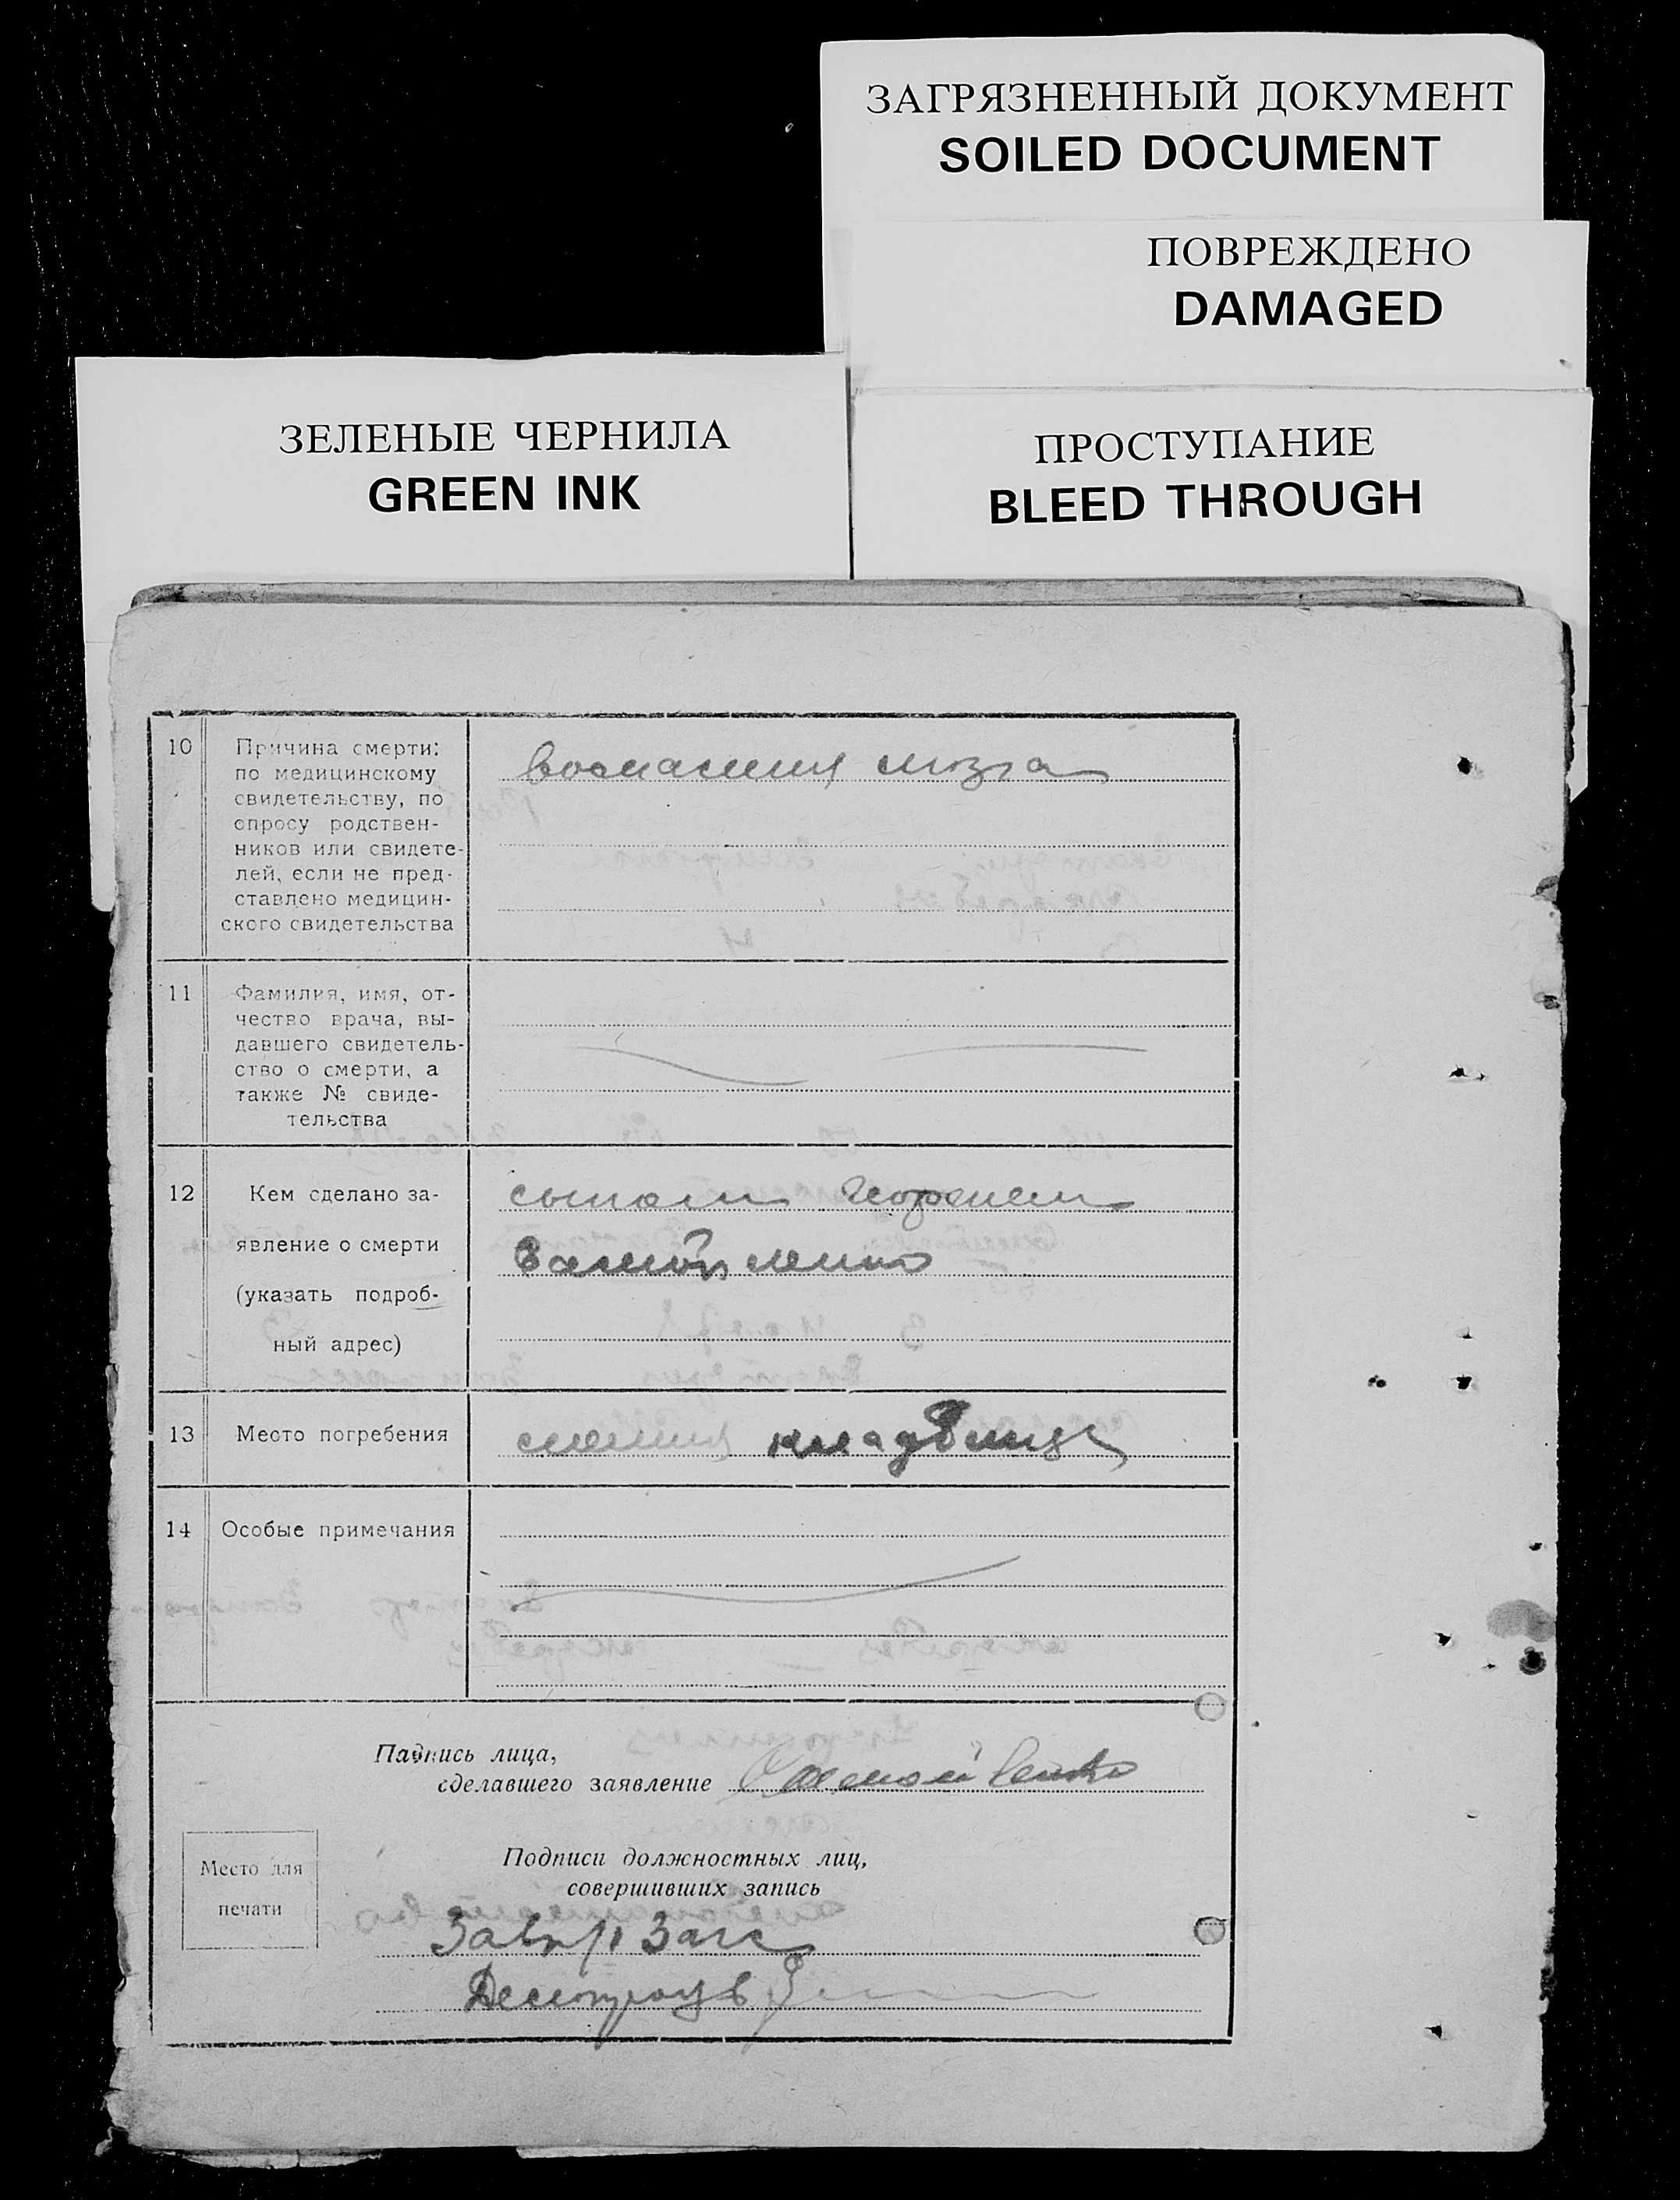 ЗАГРЯЗНЕННЫЙ ДОКУМЕНТ
SOILED DOCUMENT
ПОВРЕЖДЕНО
DAMAGED
ЗЕЛЕНЫЕ ЧЕРНИЛА
GREEN INK
ПРОСТУПАНИЕ
BLEED THROUGH
10
Причина смерти:
по медицинскому
свидетельству, по
опросу родствен-
ников или свидете-
лей, если не пред-
ставлено медицин-
ского свидетельства
воспаления мозга
11
Фамилия, имя, от-
чество врача, вы-
давшего свидетель-
ство о смерти, а
также № свиде-
тельства
12
Кем сделано за-
явление о смерти
(указать подроб-
ный адрес)
сыном
13
Место погребения
кладбище
14
Особые примечания
Подпись лица,
сделавшего заявление
Место для
печати
Подписи должностных лиц,
совершивших запись
Загс